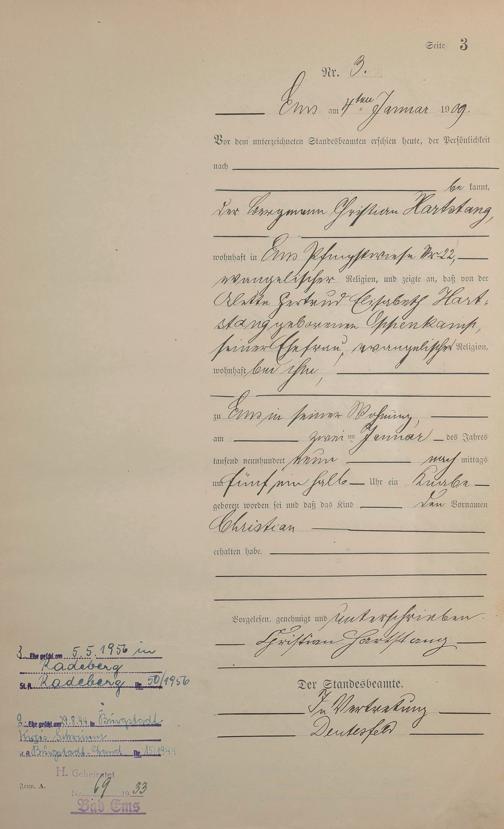 Seite 3
Nr. 3.
Ems am 4ten Januar 1909.
Vor dem unterzeichneten Standesbeamten erschien heute, der Persönlichkeit
nach
be kannt,
der Bergmann Christian Hartstang,
wohnhaft in Ems Pfingstwiese Nr 22,
evangelischer Religion, und zeigte an, daß von der
Gertrud Elisabeth Hart-
stang geborenen Oppenkamp,
seiner Ehefrau, evangelischer Religion,
wohnhaft bei ihm,
zu Ems in seiner Wohnung,
am zwei ten Januar des Jahres
tausend neunhundert neun nach mittags
um fünf ein halb Uhr ein Knabe
geboren worden sei und daß das Kind den Vornamen
Christian
erhalten habe.
Vorgelesen, genehmigt und unterschrieben
Christian Hartstang
Der Standesbeamte.
In Vertretung
3. Ehe geschl. am 5.5.1956 in
Radeberg
St.A. Radeberg Nr. 50/1956
2. Ehe geschl. am 19.8.44 in Burgstädt
Nr. 15/1944
H. Geheiratet
Form. A.
No. 69 1933
Bad Ems